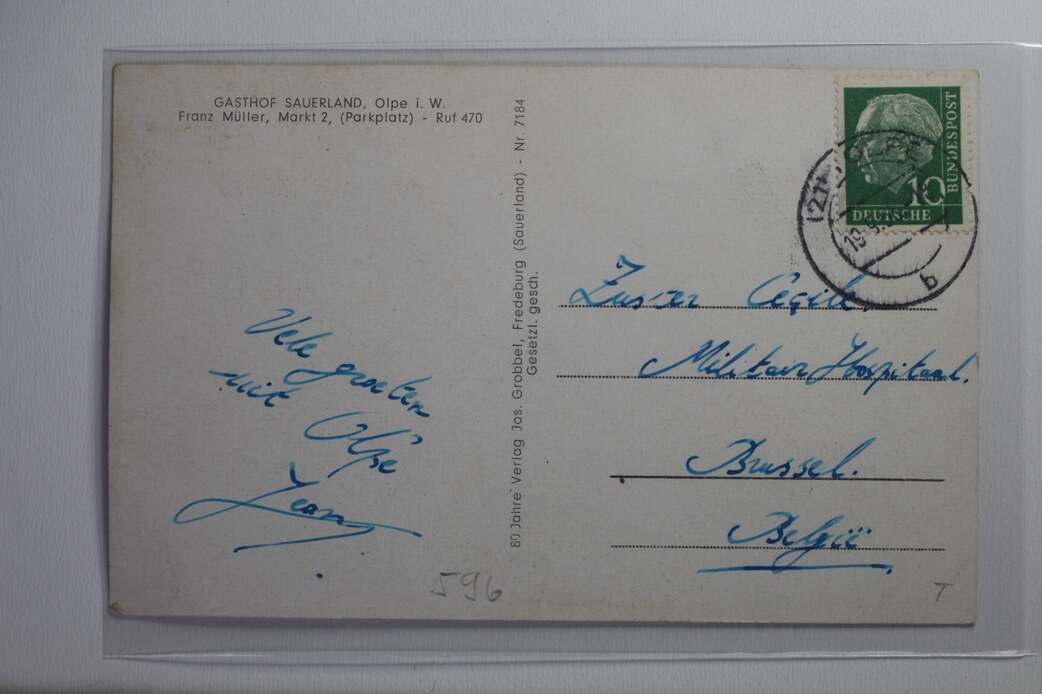 GASTHOF SAUERLAND, Olpe i. W.
Franz Müller, Markt 2, (Parkplatz) - Ruf 470
80 Jahre Verlag Jos. Grobbel, Fredeburg (Sauerland) - Nr. 7184
Gesetzl. gesch.
DEUTSCHE
BUNDESPOST
10
(21
19.9.
b
Zuster Cecile.
Militair Hospitaal.
Brussel.
België
Vele groeten
uit Olpe
Jean
596
T